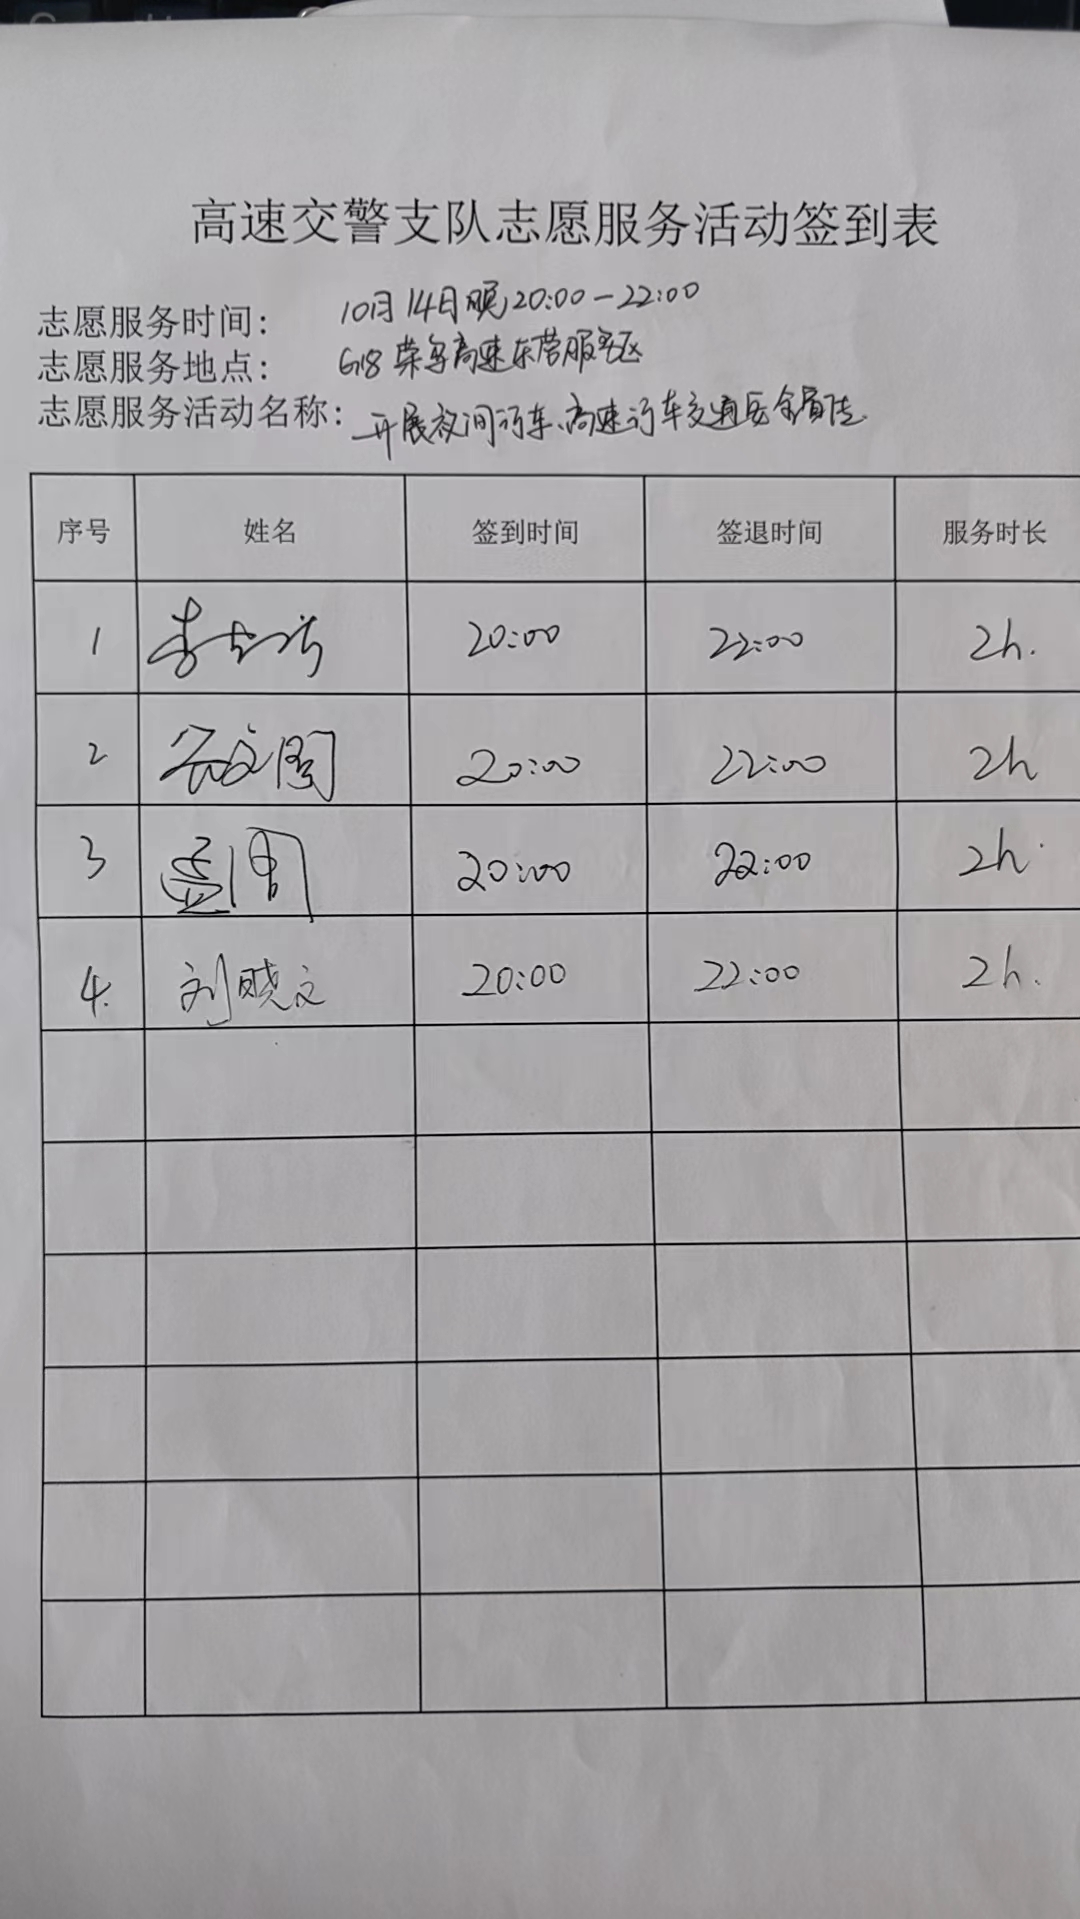 高速交警支队志愿服务活动签到表
志愿服务时间: 10月14日晚20:00-22:00
志愿服务地点: G18荣乌高速东营服务区
志愿服务活动名称: 开展夜间行车、高速行车交通安全宣传
序号 姓名 签到时间 签退时间 服务时长
1 李 20:00 22:00 2h.
2 20:00 22:00 2h
3 20:00 22:00 2h.
4. 刘晓文 20:00 22:00 2h.